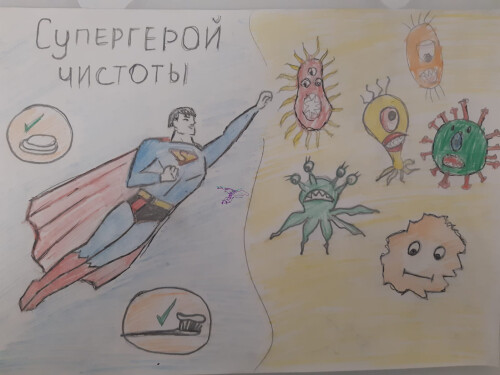 Супергерой
чистоты